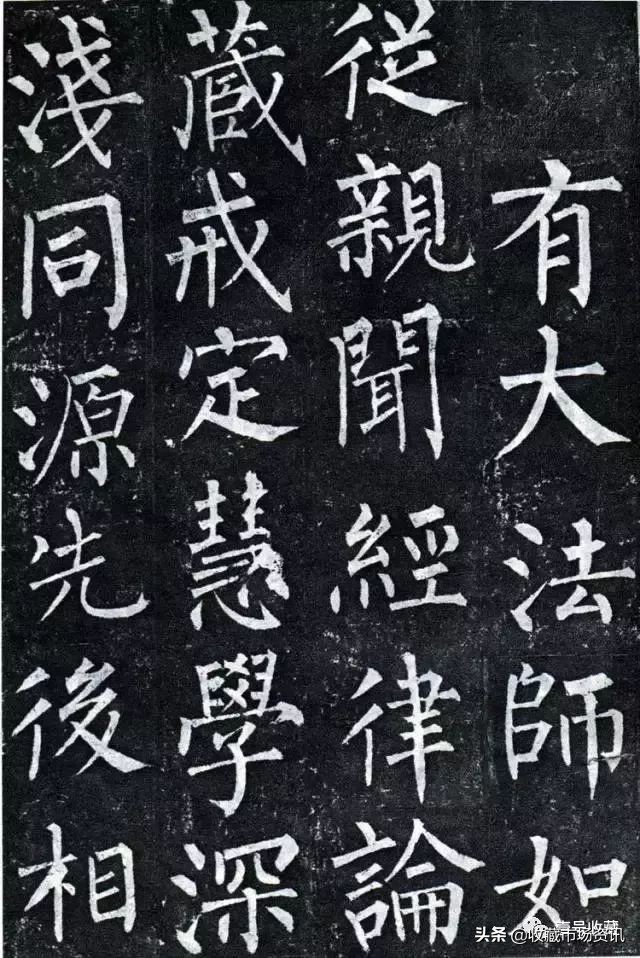 有大法師如
從親聞經律論
藏戒定慧學深
淺同源先後相
壹号收藏
头条 @收藏市场资讯